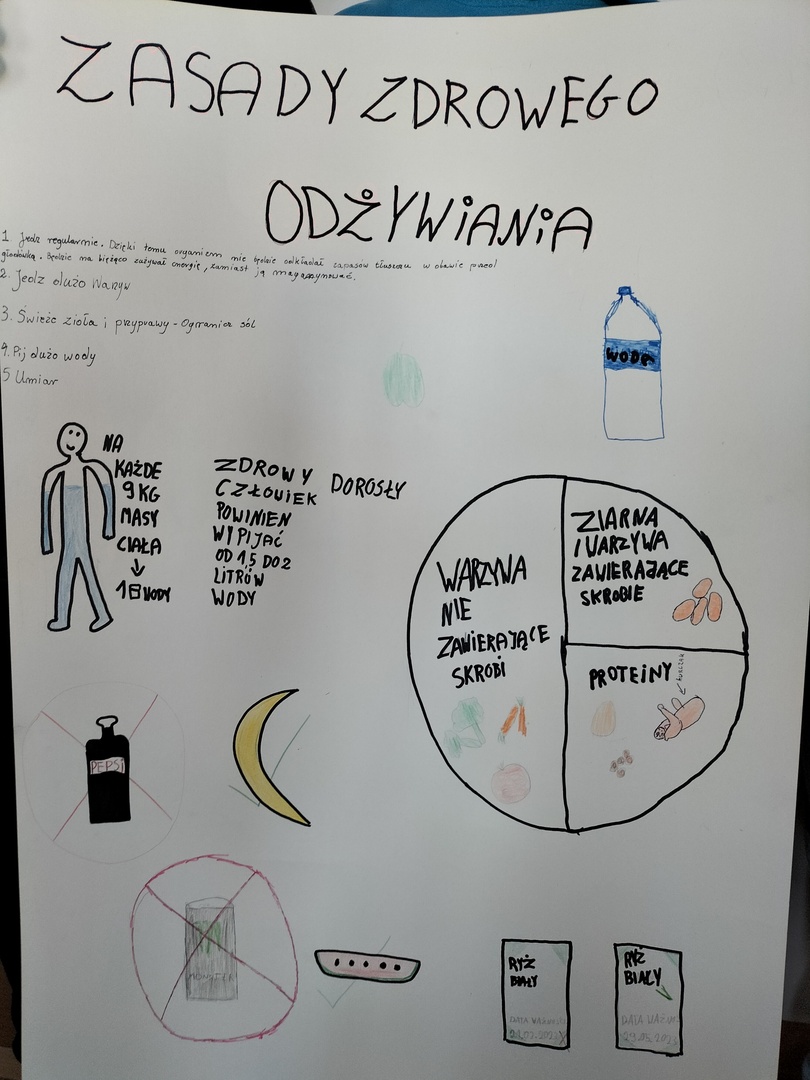 ZASADY ZDROWEGO
ODŻYWIANIA
1. Jedz regularnie. Dzięki temu organizm nie będzie odkładał zapasów tłuszczu w obawie przed
głodówką. Będzie na bieżąco zużywał energię, zamiast ją magazynować.
2. Jedz dużo warzyw
3. Świeże zioła i przyprawy - Ogranicz sól
4. Pij dużo wody
5 Umiar
WODA
NA
KAŻDE
9 KG
MASY
CIAŁA
↓
WODY
ZDROWY DOROSŁY
CZŁOWIEK
POWINIEN
WYPIJAĆ
OD 1,5 DO 2
LITRÓW
WODY
WARZYWA
NIE
ZAWIERAJĄCE
SKROBI
ZIARNA
I WARZYWA
ZAWIERAJĄCE
SKROBIE
PROTEINY
kurczak
PEPSI
MONSTER
RYŻ
BIAŁY
DATA WAŻNOŚCI
RYŻ
BIAŁY
DATA WAŻNOŚCI